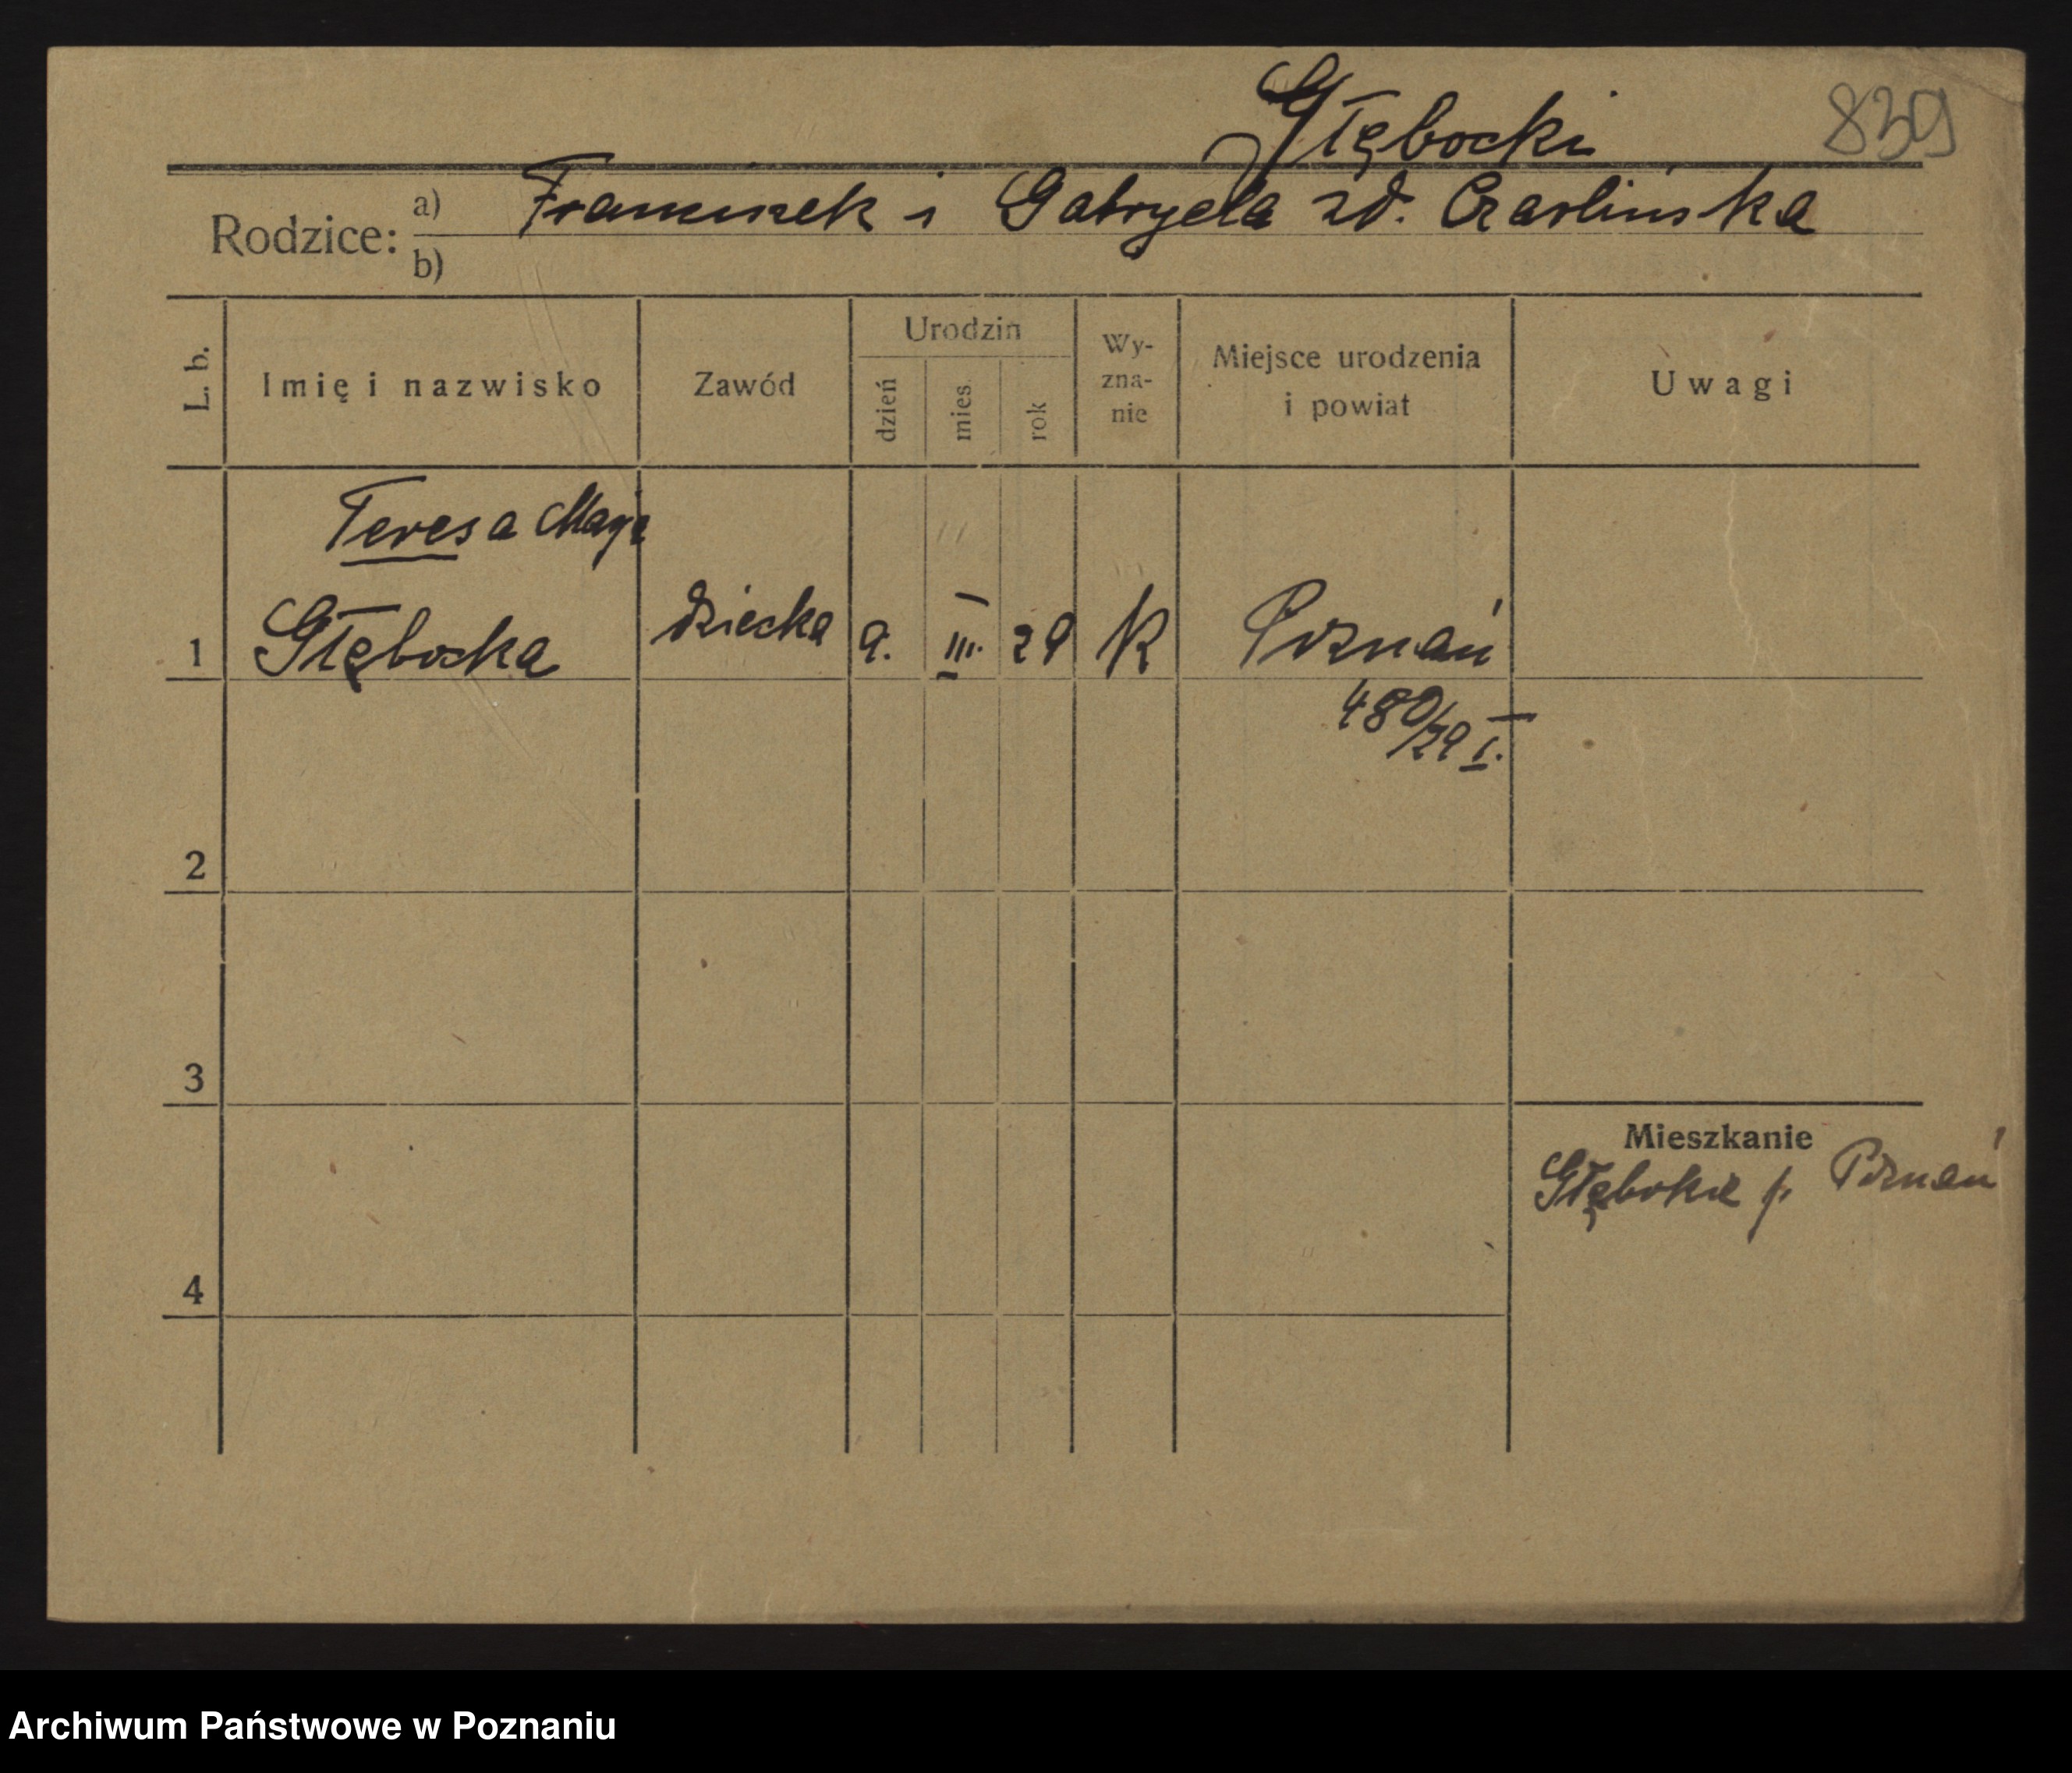 Głębocki
839
Rodzice: a) Franciszek i Gabryela zd. Czarlińska
b)
L. b.
Imię i nazwisko
Zawód
Urodzin
dzień
mies.
rok
Wy-
zna-
nie
Miejsce urodzenia
i powiat
Uwagi
Teresa Marja
1 Głębocka dziecko 9. III. 29 k Poznań
480/29 I.
2
3
4
Mieszkanie
Głębokie p. Poznań
Archiwum Państwowe w Poznaniu